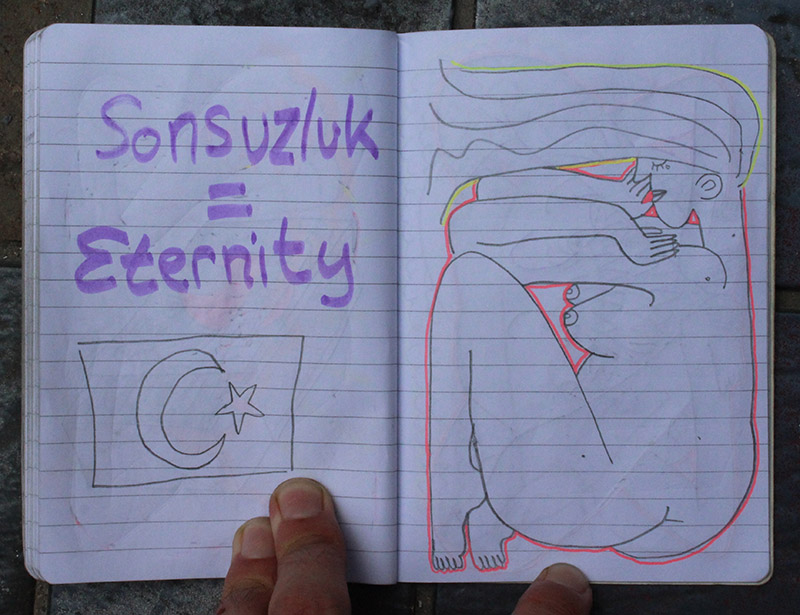 Sonsuzluk
=
Eternity